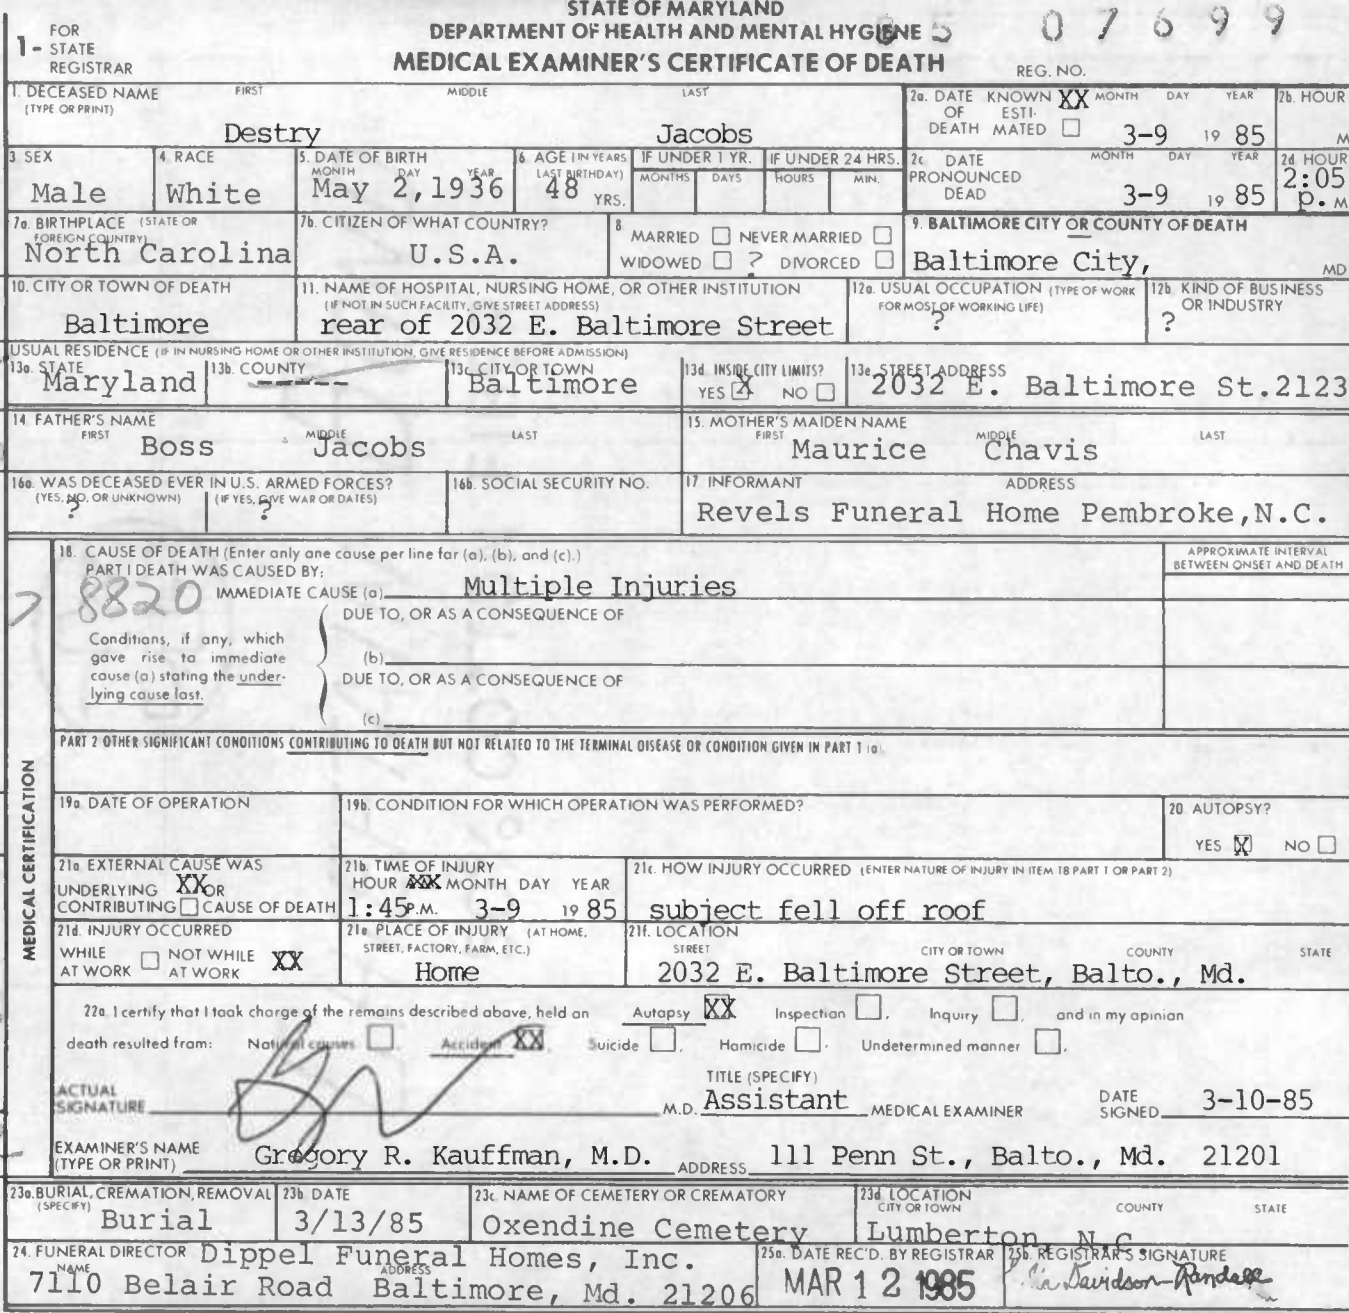 STATE OF MARYLAND
DEPARTMENT OF HEALTH AND MENTAL HYGIENE 85 07699
MEDICAL EXAMINER'S CERTIFICATE OF DEATH REG. NO.
1- FOR STATE REGISTRAR
1. DECEASED NAME (TYPE OR PRINT) FIRST MIDDLE LAST
Destry Jacobs
2a. DATE OF DEATH KNOWN XX ESTIMATED MONTH DAY YEAR 3-9 1985
2b. HOUR M
3 SEX Male
4. RACE White
5. DATE OF BIRTH MONTH DAY YEAR May 2,1936
6. AGE (IN YEARS LAST BIRTHDAY) 48 YRS.
IF UNDER 1 YR. MONTHS DAYS
IF UNDER 24 HRS. HOURS MIN.
2c DATE PRONOUNCED DEAD MONTH DAY YEAR 3-9 1985
2d HOUR 2:05 p. M
7a. BIRTHPLACE (STATE OR FOREIGN COUNTRY) North Carolina
7b. CITIZEN OF WHAT COUNTRY? U.S.A.
8 MARRIED NEVER MARRIED
WIDOWED ? DIVORCED
9. BALTIMORE CITY OR COUNTY OF DEATH
Baltimore City, MD
10. CITY OR TOWN OF DEATH Baltimore
11. NAME OF HOSPITAL, NURSING HOME, OR OTHER INSTITUTION
(IF NOT IN SUCH FACILITY, GIVE STREET ADDRESS)
rear of 2032 E. Baltimore Street
12a. USUAL OCCUPATION (TYPE OF WORK FOR MOST OF WORKING LIFE) ?
12b. KIND OF BUSINESS OR INDUSTRY ?
USUAL RESIDENCE (IF IN NURSING HOME OR OTHER INSTITUTION, GIVE RESIDENCE BEFORE ADMISSION)
13a. STATE Maryland
13b. COUNTY -----
13c. CITY OR TOWN Baltimore
13d INSIDE CITY LIMITS? YES X NO
13e STREET ADDRESS 2032 E. Baltimore St.2123
14. FATHER'S NAME FIRST MIDDLE LAST
Boss Jacobs
15. MOTHER'S MAIDEN NAME FIRST MIDDLE LAST
Maurice Chavis
16a. WAS DECEASED EVER IN U.S. ARMED FORCES?
(YES, NO, OR UNKNOWN) ? (IF YES, GIVE WAR OR DATES) ?
16b. SOCIAL SECURITY NO.
17 INFORMANT ADDRESS
Revels Funeral Home Pembroke,N.C.
MEDICAL CERTIFICATION
18. CAUSE OF DEATH (Enter only one cause per line for (a), (b), and (c).)
APPROXIMATE INTERVAL BETWEEN ONSET AND DEATH
PART I DEATH WAS CAUSED BY:
8820 IMMEDIATE CAUSE (a) Multiple Injuries
DUE TO, OR AS A CONSEQUENCE OF
Conditions, if any, which
gave rise to immediate
cause (a) stating the under-
lying cause last.
(b)
DUE TO, OR AS A CONSEQUENCE OF
(c)
PART 2 OTHER SIGNIFICANT CONDITIONS CONTRIBUTING TO DEATH BUT NOT RELATED TO THE TERMINAL DISEASE OR CONDITION GIVEN IN PART 1 (a)
19a DATE OF OPERATION
19b. CONDITION FOR WHICH OPERATION WAS PERFORMED?
20 AUTOPSY? YES X NO
21a EXTERNAL CAUSE WAS
UNDERLYING XX OR
CONTRIBUTING CAUSE OF DEATH
21b. TIME OF INJURY
HOUR MONTH DAY YEAR
1:45 P.M. 3-9 1985
21c. HOW INJURY OCCURRED (ENTER NATURE OF INJURY IN ITEM 18 PART 1 OR PART 2)
subject fell off roof
21d. INJURY OCCURRED
WHILE AT WORK NOT WHILE AT WORK XX
21e PLACE OF INJURY (AT HOME, STREET, FACTORY, FARM, ETC.)
Home
21f. LOCATION STREET CITY OR TOWN COUNTY STATE
2032 E. Baltimore Street, Balto., Md.
22a I certify that I took charge of the remains described above, held an Autopsy XX Inspection , Inquiry , and in my opinion
death resulted from: Natural causes , Accident XX, Suicide , Homicide , Undetermined manner .
ACTUAL SIGNATURE M.D. TITLE (SPECIFY) Assistant MEDICAL EXAMINER DATE SIGNED 3-10-85
EXAMINER'S NAME (TYPE OR PRINT) Gregory R. Kauffman, M.D. ADDRESS 111 Penn St., Balto., Md. 21201
23a. BURIAL, CREMATION, REMOVAL (SPECIFY) Burial
23b DATE 3/13/85
23c NAME OF CEMETERY OR CREMATORY Oxendine Cemetery
23d LOCATION CITY OR TOWN COUNTY STATE
Lumberton, N.C.
24. FUNERAL DIRECTOR Dippel Funeral Homes, Inc.
NAME ADDRESS
7110 Belair Road Baltimore, Md. 21206
25a. DATE REC'D. BY REGISTRAR MAR 12 1985
25b. REGISTRAR'S SIGNATURE Davidson-Randall